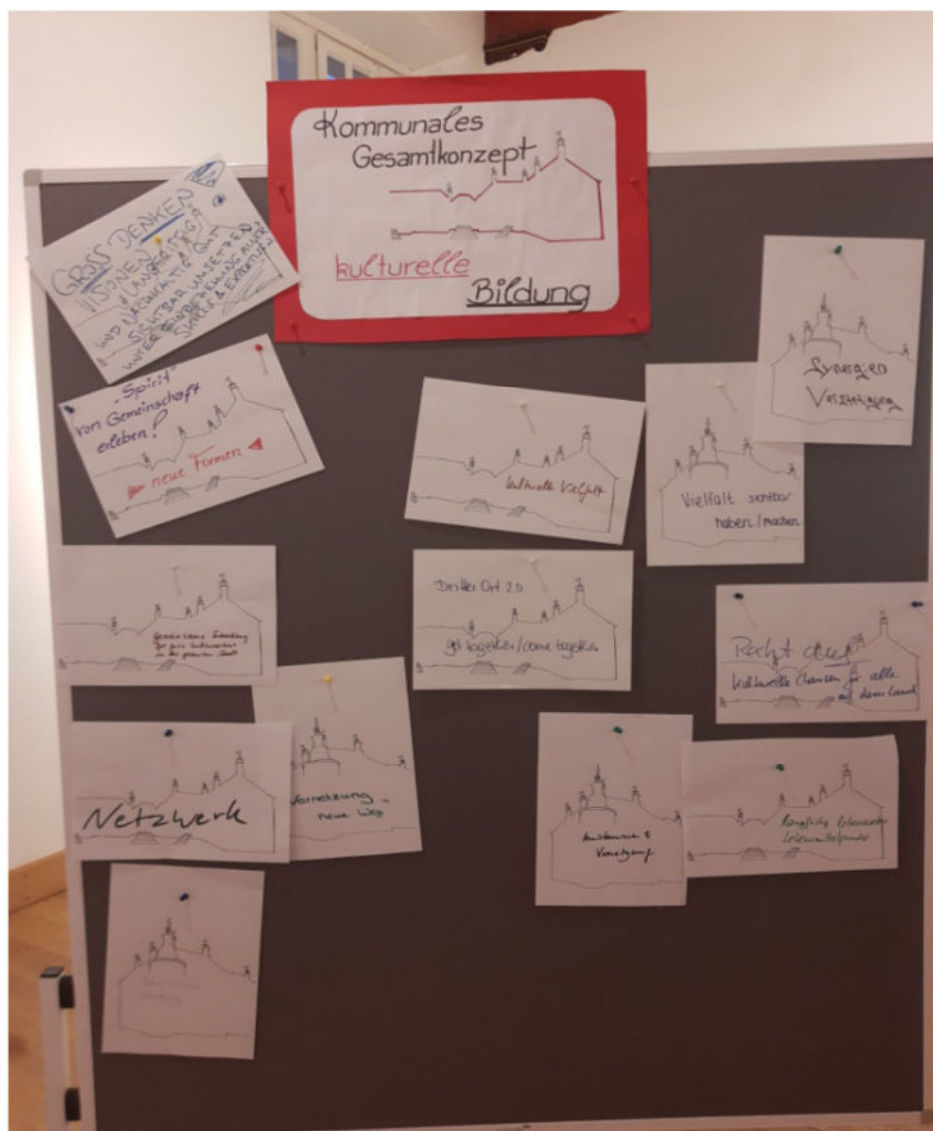 Kommunales
Gesamtkonzept
kulturelle
Bildung
GROSS DENKEN
VISIONEN
LANGFRISTIG
UND NACHHALTIG GUT
SICHTBAR UMSETZEN
UNTER EINBEZIEHUNG ALLER
"Spirit"
von Gemeinschaft
erleben!
neue Formen
kulturelle Vielfalt
Synergien
Verstetigung
Vielfalt sichtbar
haben/machen
Gemeinsame
in der gesamten Stadt
Dritter Ort 2.0
get together/come together
Recht auf
kulturelle Chancen für alle
auf dem Land
Netzwerk
Vernetzung
neue Weg
Austausch &
Vernetzung